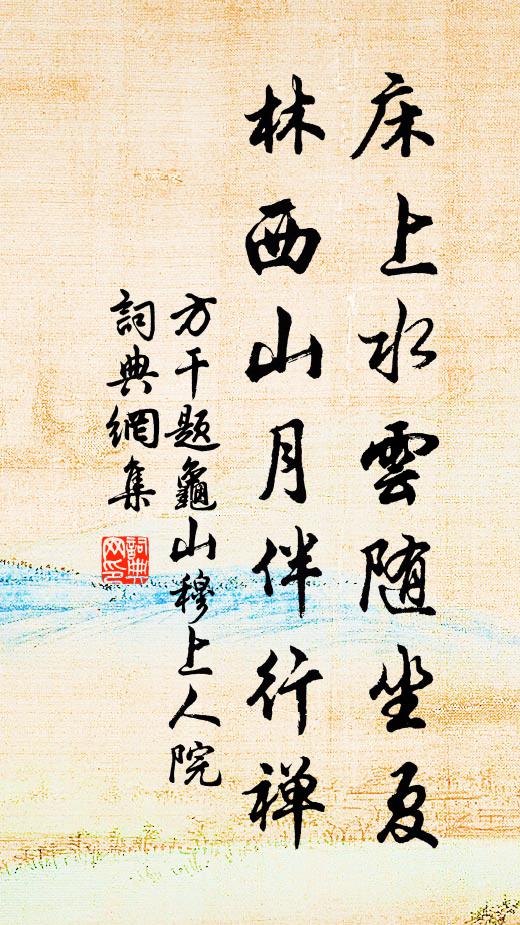 床上水雲随坐夏
林西山月伴行禅
方干题龜山穆上人院
詞典網集
詞典
网印